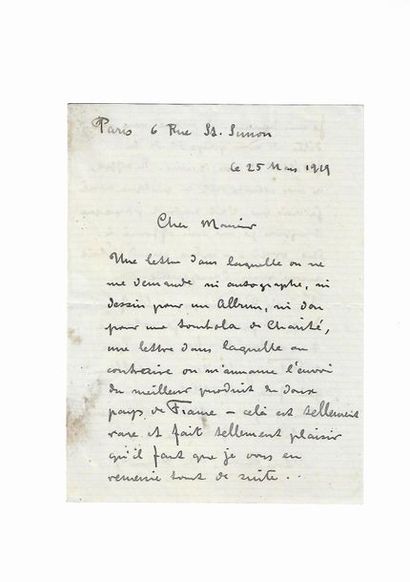 Paris 6 Rue St. Simon
Le 25 Mars 1919
Cher Monsieur
Une lettre dans laquelle on ne
me demande ni autographe, ni
dessin pour un Album, ni don
pour une tombola de Charité,
une lettre dans laquelle au
contraire on m'annonce l'envoi
du meilleur produit du doux
pays de France – celà est tellement
rare et fait tellement plaisir
qu'il faut que je vous en
remercie tout de suite..